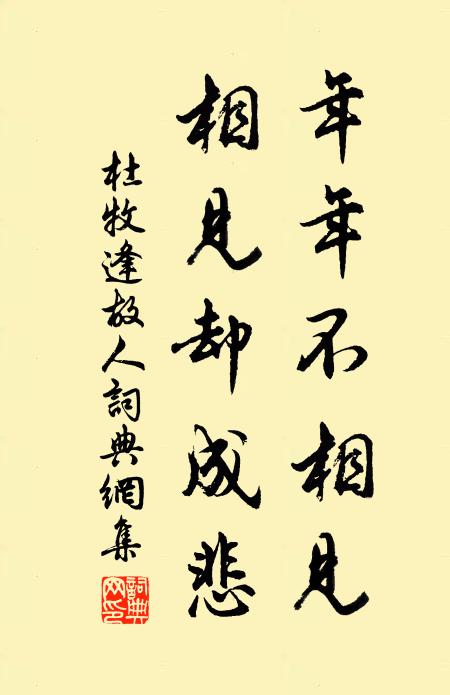 年年不相見
相見却成悲
杜牧逢故人詞典網集
詞典網印